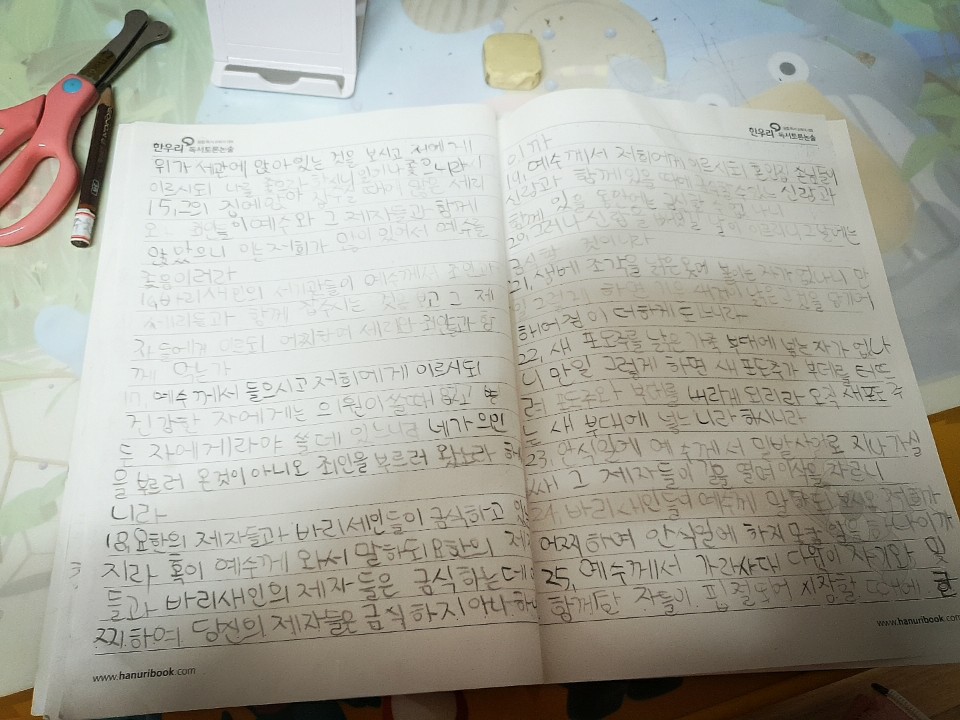 한우리 독서토론논술
위가 세관에 앉아 있는 것을 보시고 저에게
이르시되 나를 좇으라 하시니 일어나 좇으니라
15, 그의 집에 앉아 잡수실 때에 많은 세리
와 죄인들이 예수와 그 제자들과 함께
앉았으니 이는 저희가 많이 있어서 예수를
좇음이러라
16, 바리새인의 서기관들이 예수께서 죄인과
세리들과 함께 잡수시는 것을 보고 그 제
자들에게 이르되 어찌하여 세리와 죄인들과 함
께 먹는가
17, 예수께서 들으시고 저희에게 이르시되
건강한 자에게는 의원이 쓸데 없고 병
든 자에게라야 쓸데 있느니라 내가 의인
을 부르러 온것이 아니오 죄인을 부르러 왔노라 하
니라
18, 요한의 제자들과 바리세인들이 금식하고 있는
지라 혹이 예수께 와서 말하되 요한의 제자
들과 바리새인의 제자 들은 금식 하는데
찌하여 당신의 제자들은 금식 하지 아니 하
www.hanuribook.com
한우리 독서토론논술
이까
19, 예수께서 저희에게 이르시되 혼인집 손님들이
신랑과 함께 있을 때에 금식할 수 있느냐 신랑과
함께 있을 동안에는 금식할 수 없나니
20, 그러나 신랑을 빼앗길 날이 이르리니 그 날에는
금식할 것이니라
21, 생베 조각을 낡은 옷에 붙이는 자가 없나니 만
일 그렇게 하면 기운 새것이 낡은 그것을 당기어
해어짐이 더하게 되느니라
22, 새 포도주를 낡은 가죽 부대에 넣는 자가 없나
니 만일 그렇게 하면 새 포도주가 부대를 터뜨
려 포도주와 부대를 버리게 되리라 오직 새포도주
는 새 부대에 넣느니라 하시니라
23, 안식일에 예수께서 밀밭 사이로 지나가실
쌔 그 제자들이 길을 열며 이삭을 자르니
24, 바리새인들이 예수께 말하되 보시오 저희가
어찌하여 안식일에 하지 못할 일을 하나이까
25, 예수께서 가라사대 다윗이 자기와 및
함께한 자들이 핍절되어 시장할 때에 한
www.hanuribook.com